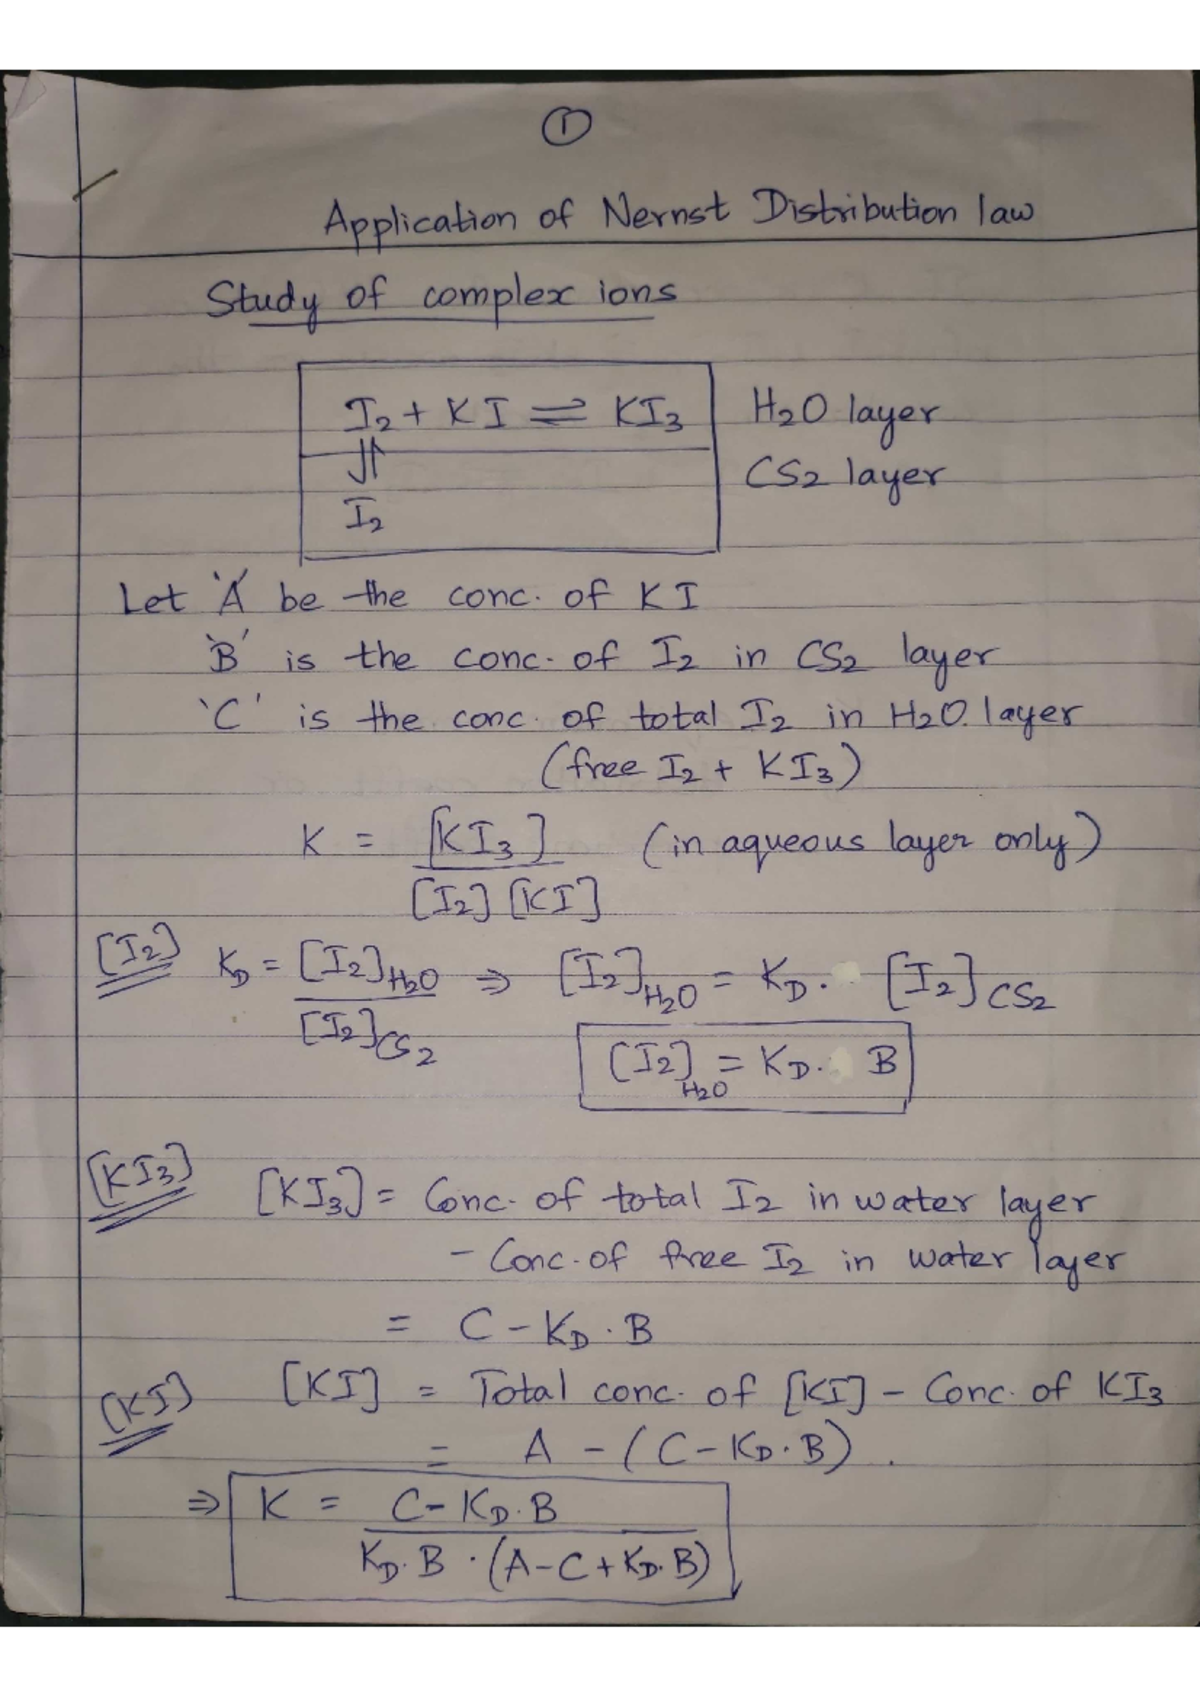 ①
Application of Nernst Distribution law
Study of complex ions
I2 + KI ⇌ KI3 H2O layer
⇌ CS2 layer
I2
Let 'A' be the conc. of KI
'B' is the conc. of I2 in CS2 layer
'C' is the conc. of total I2 in H2O layer
(free I2 + KI3)
K = [KI3] / [I2] [KI] (in aqueous layer only)
[I2] KD = [I2]H2O / [I2]CS2 ⇒ [I2]H2O = KD . [I2]CS2
[I2]H2O = KD . B
[KI3] [KI3] = Conc. of total I2 in water layer
- Conc. of free I2 in water layer
= C - KD . B
[KI] [KI] = Total conc. of [KI] - Conc. of KI3
= A - (C - KD . B) .
⇒ K = C - KD . B / KD . B . (A - C + KD . B)